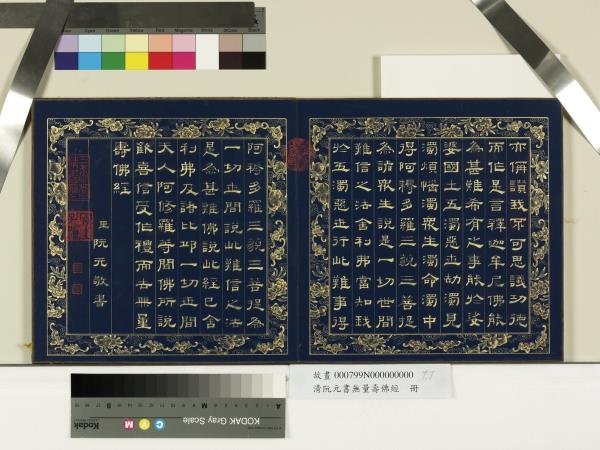 亦稱讚我不可思議功德
而作是言釋迦牟尼佛能
為甚難希有之事能於娑
婆國土五濁惡世劫濁見
濁煩惱濁眾生濁命濁中
得阿耨多羅三藐三菩提
為諸眾生說是一切世間
難信之法舍利弗當知我
於五濁惡世行此難事得
阿耨多羅三藐三菩提為
一切世間說此難信之法
是為甚難佛說此經已舍
利弗及諸比丘一切世間
天人阿修羅等聞佛所說
歡喜信受作禮而去無量
壽佛經
臣阮元敬書
故畫 000799N000000000
清阮元書無量壽佛經 冊
KODAK Gray Scale
Kodak
C Y M